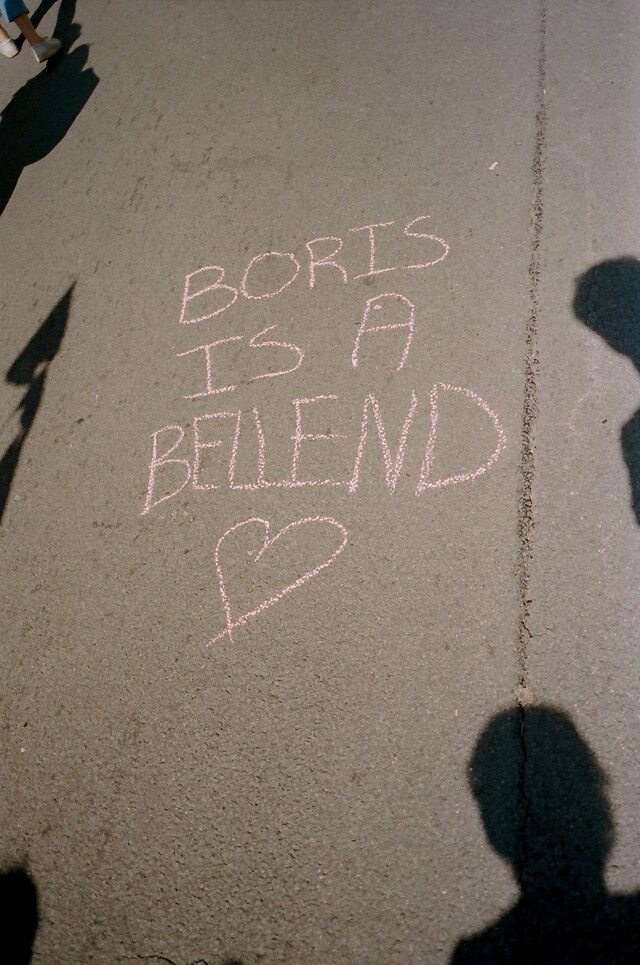 BORIS
IS A
BELLEND